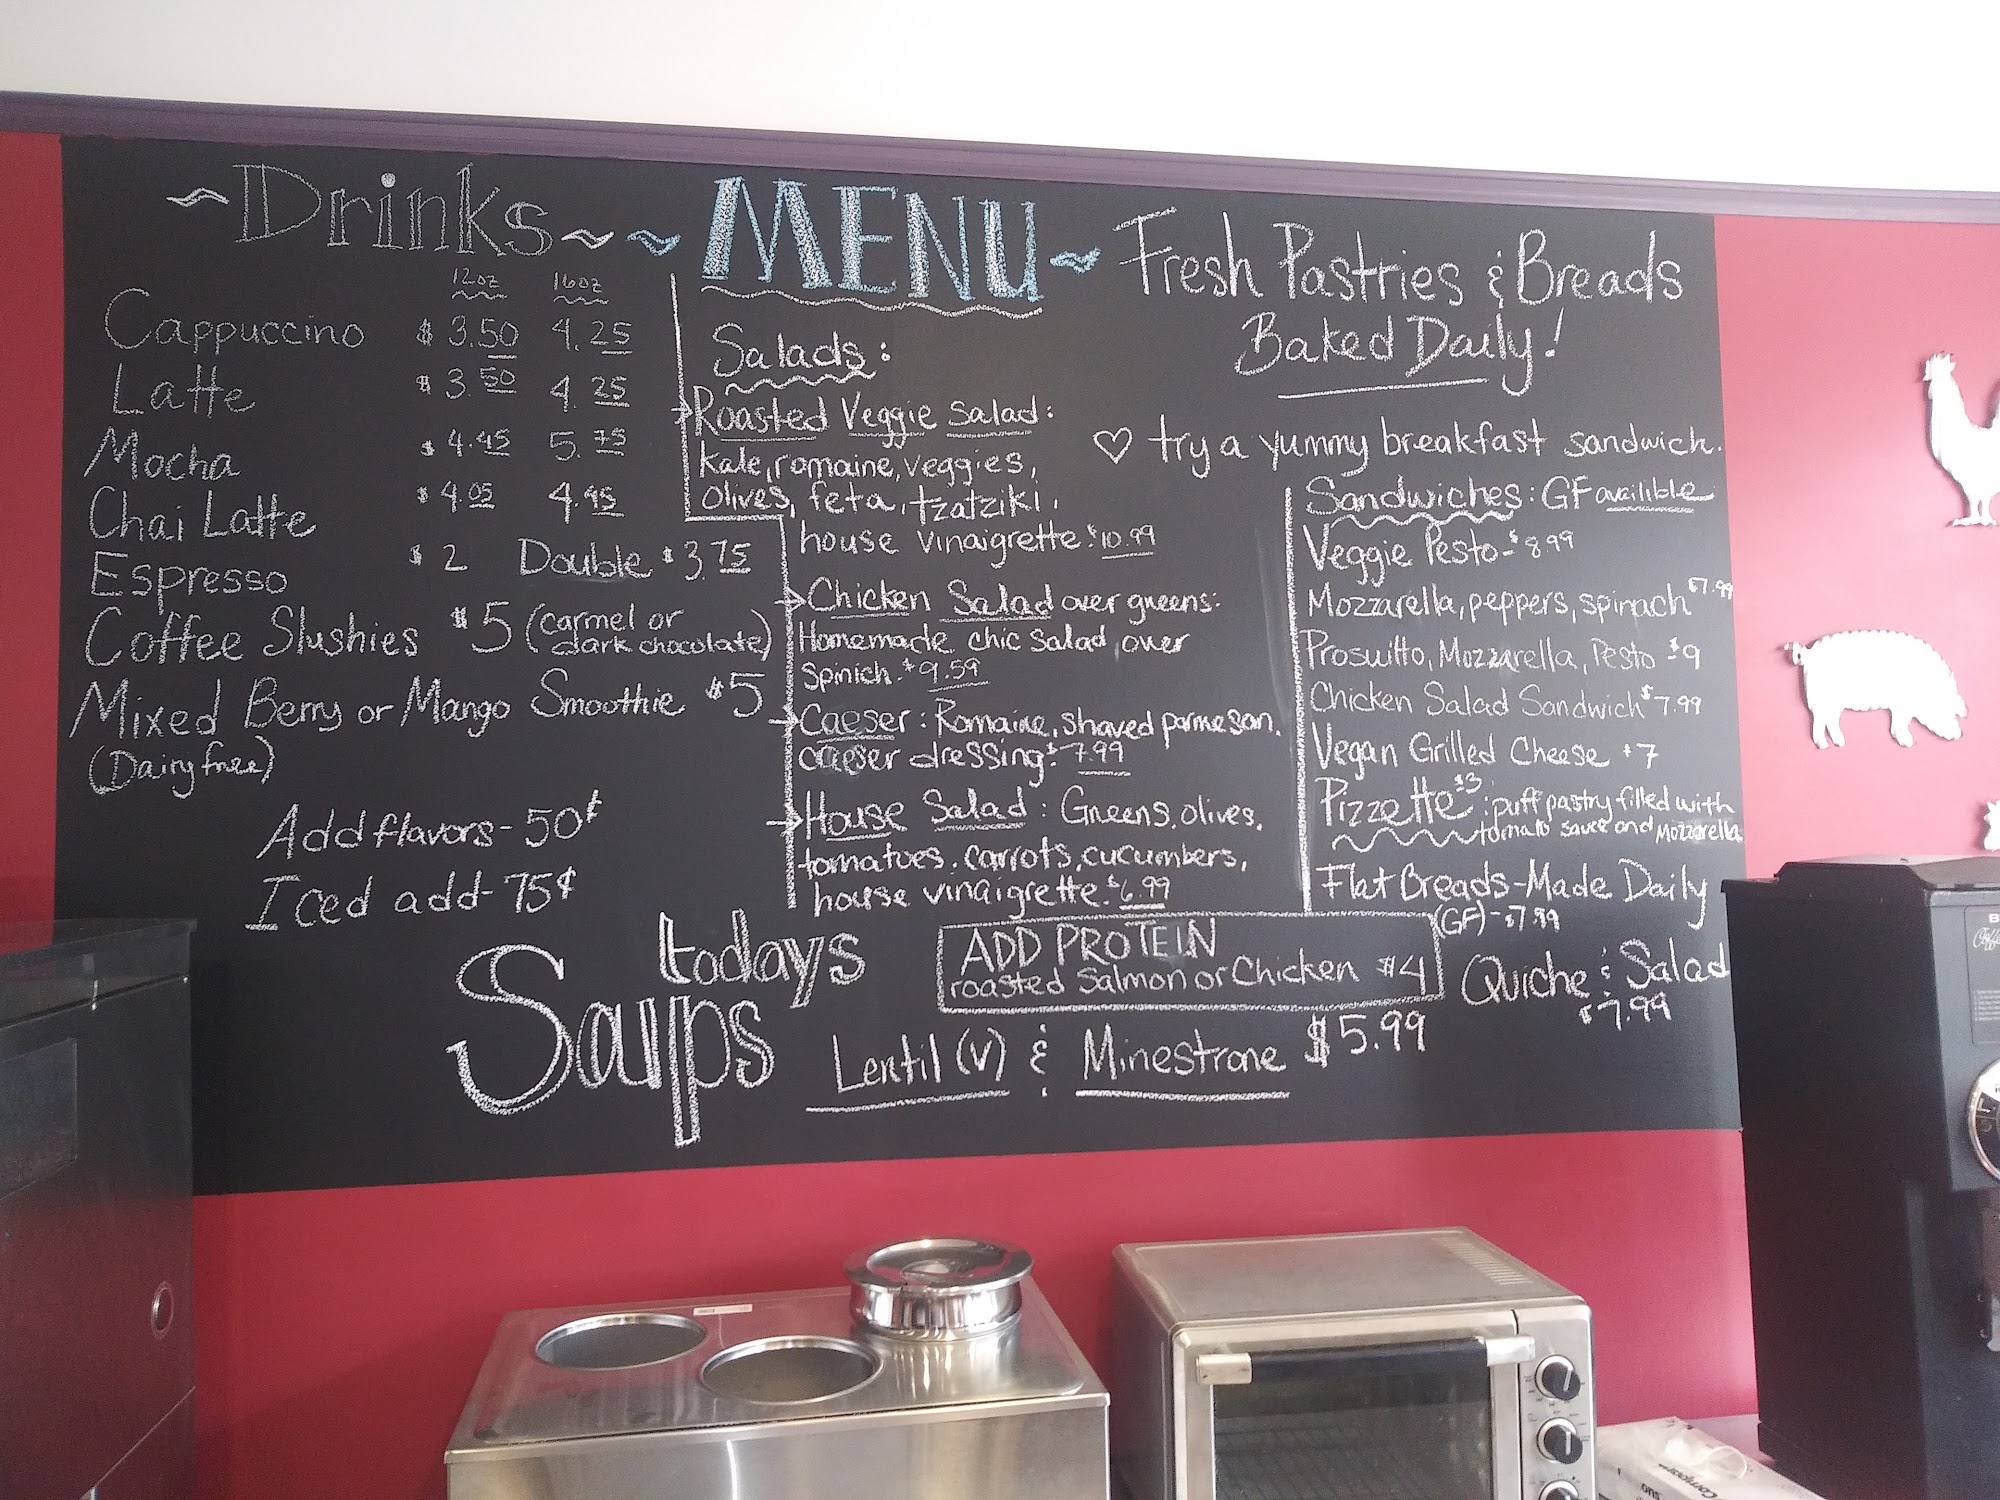 ~Drinks~
12oz 16oz
Cappuccino $3.50 4.25
Latte $3.50 4.25
Mocha $4.45 5.75
Chai Latte $4.05 4.95
Espresso $2 Double $3.75
Coffee Slushies $5 (carmel or
dark chocolate)
Mixed Berry or Mango Smoothie $5
(Dairy free)
Add flavors - 50¢
Iced add - 75¢
~MENU~
Salads:
Roasted Veggie Salad:
kale, romaine, veggies,
olives, feta, tzatziki,
house vinaigrette $10.99
Chicken Salad over greens:
Homemade chic salad over
spinich $9.59
Caeser: Romaine, shaved parmesan,
caeser dressing $7.99
House Salad: Greens, olives,
tomatoes, carrots, cucumbers,
house vinaigrette $6.99
ADD PROTEIN
roasted Salmon or Chicken $4
Fresh Pastries & Breads
Baked Daily!
♡ try a yummy breakfast sandwich.
Sandwiches: GF availible
Veggie Pesto - $8.99
Mozzarella, peppers, spinach $7.99
Proswitto, Mozzarella, Pesto $9
Chicken Salad Sandwich $7.99
Vegan Grilled Cheese $7
Pizzette $3: puff pastry filled with
tomato sauce and Mozzarella
Flat Breads - Made Daily
(GF) - $7.99
Quiche & Salad
$7.99
todays
Soups
Lentil (v) & Minestrone $5.99